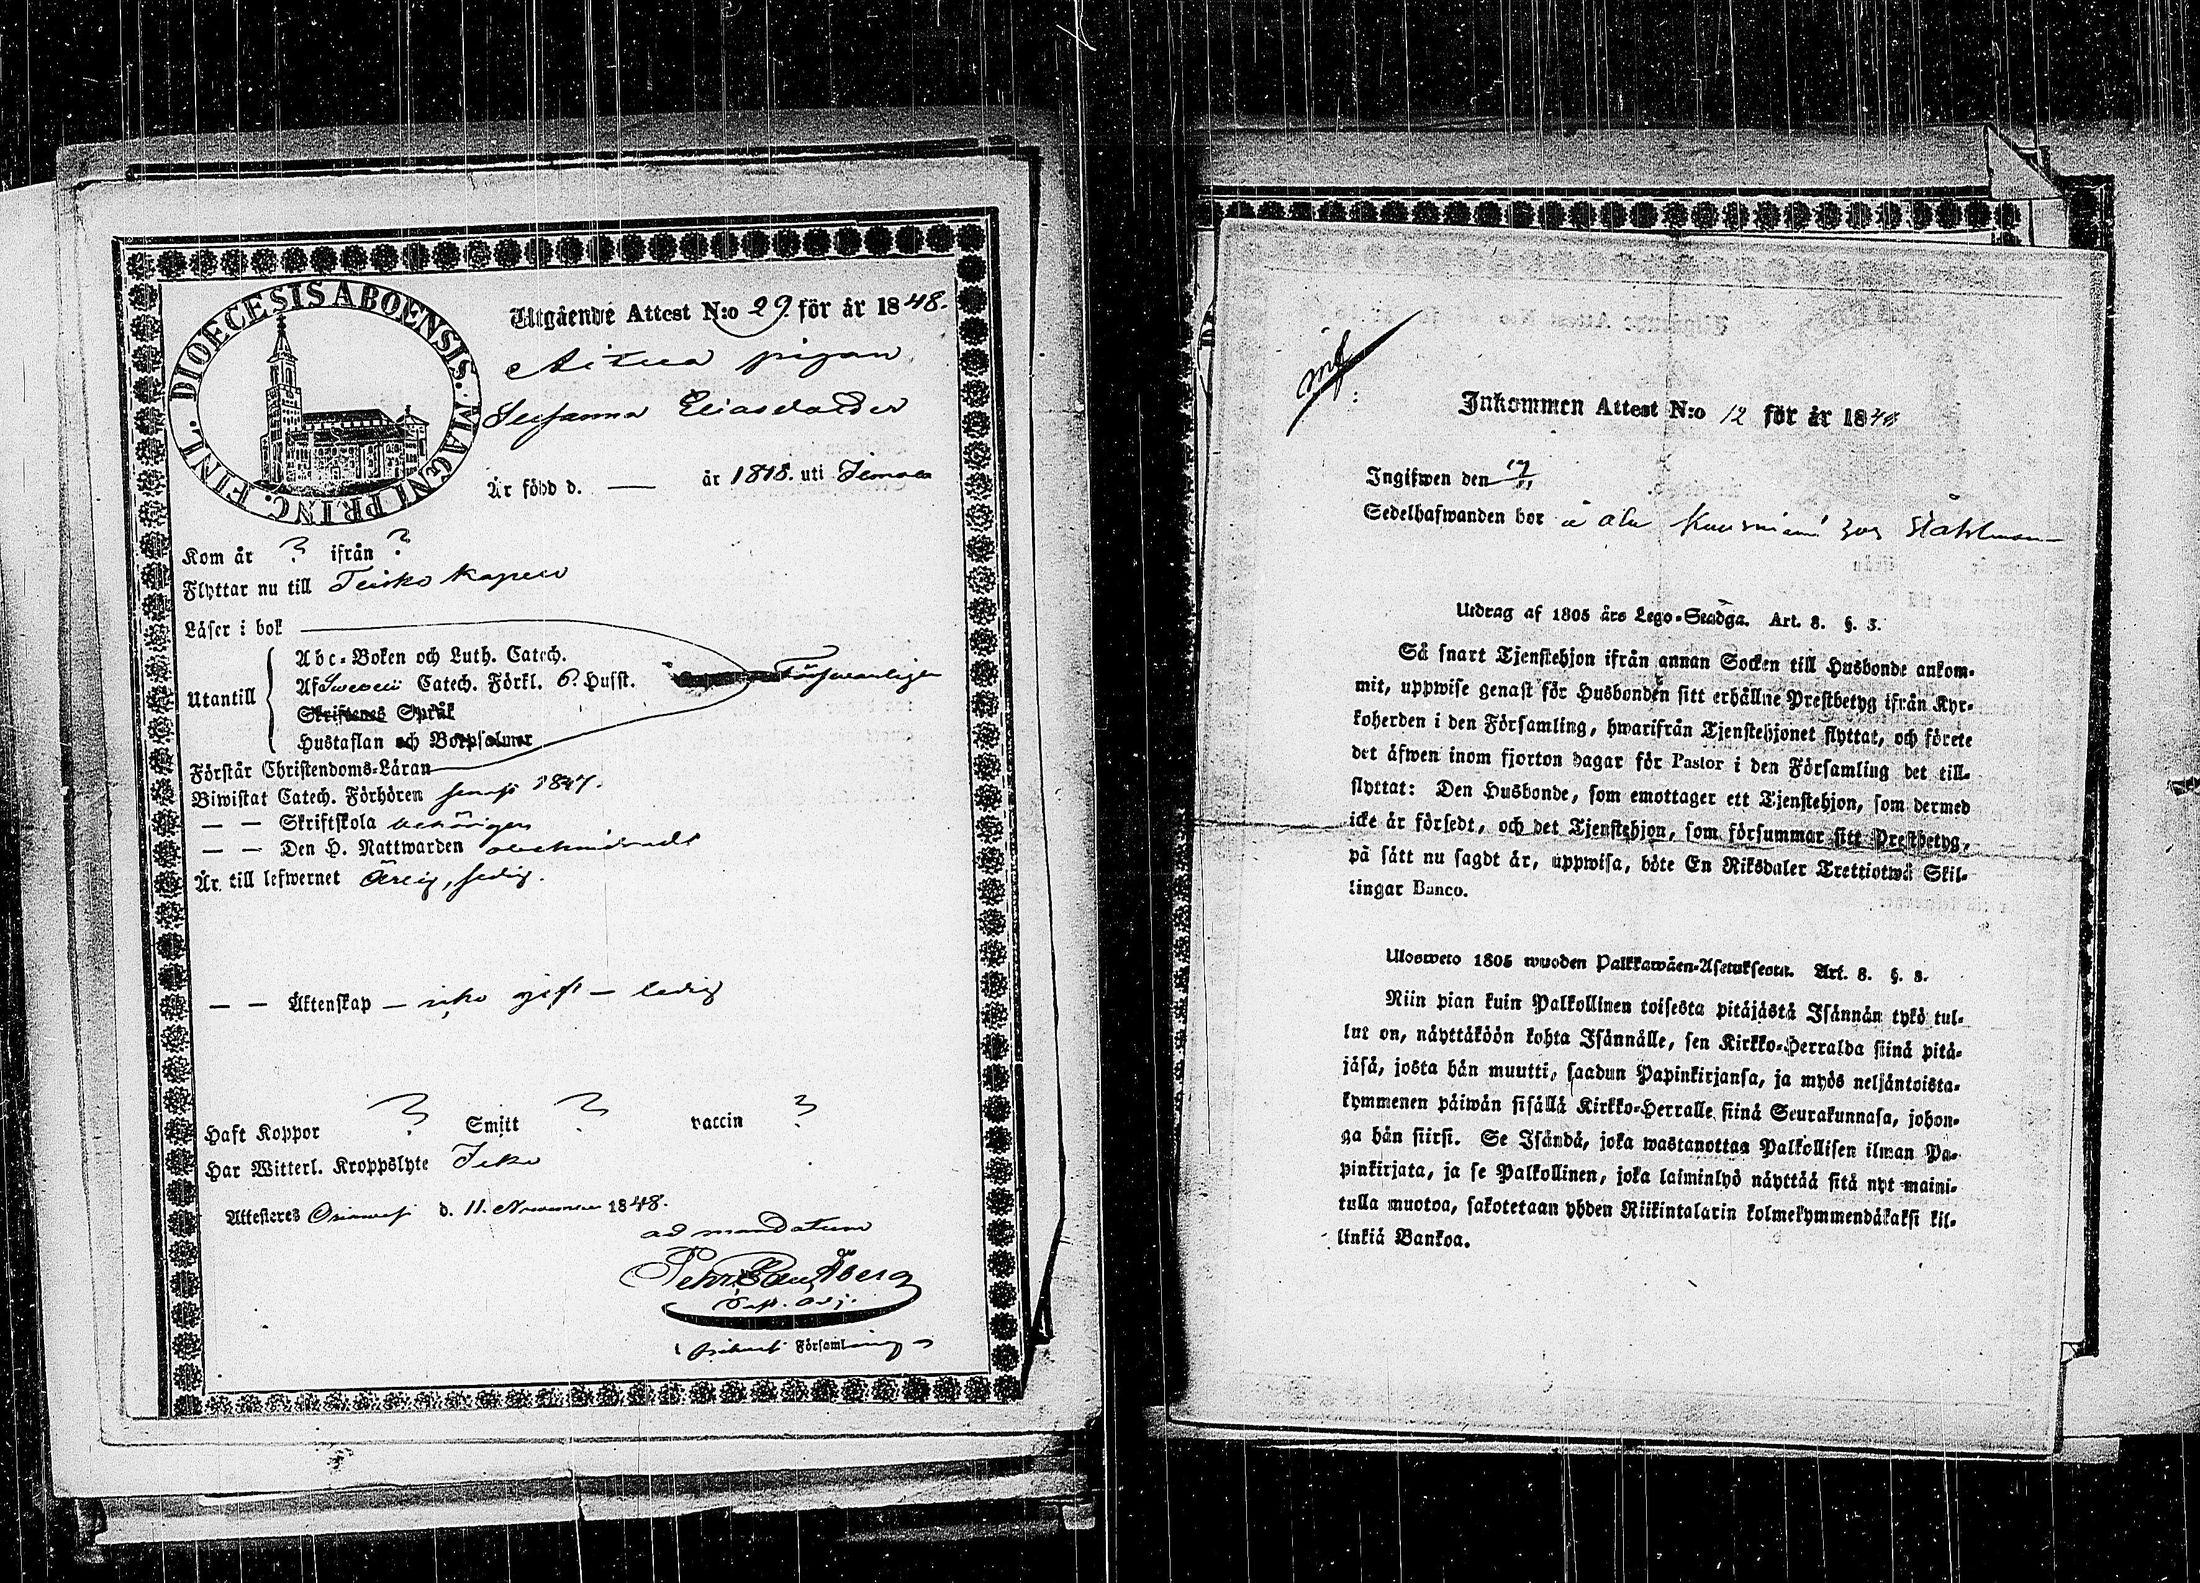 DIOECESIS ABOENSIS. MAGNI PRINC. FINL.
Utgående Attest N:o 29. för år 1848.
pigan
Eliasdotter
Är född d. — år 1818. uti
Kom år ? ifrån ?
Flyttar nu till Teisko Kapell
Läser i bok
Utantill
Abc-Boken och Luth. Catech.
Af Swebelii Catech. Förkl. 6. Husst. Försvarligen
Skriftenes Språk
Hustaflan och Botpsalmer
Förstår Christendoms-Läran
Biwistat Catech. Förhören senast 1847.
— — Skriftskola behörigen
— — Den H. Nattwarden
Är till lefwernet Ärlig, sedig.
— — Äktenskap — icke gift — ledig
Haft Koppor ? Smitt ? vaccin ?
Har Witterl. Kroppslyte Icke
Attesteres Orivesi d. 11. November 1848.
ad mandatum
Församling
Inkommen Attest N:o 12 för år 1848
Ingifwen den 17/11
Sedelhafwanden bor å Ala hos Ståhlman
Utdrag af 1805 års Lego-Stadga. Art. 8. §. 3.
Så snart Tjenstehjon ifrån annan Socken till Husbonde ankom-
mit, uppwise genast för Husbonden sitt erhållne Prestbetyg ifrån Kyr-
koherden i den Församling, hwarifrån Tjenstehjonet flyttat, och förete
det äfwen inom fjorton dagar för Pastor i den Församling det till-
flyttat: Den Husbonde, som emottager ett Tjenstehjon, som dermed
icke är försedt, och det Tjenstehjon, som försummar sitt Prestbetyg,
på sätt nu sagdt är, uppwisa, böte En Riksdaler Trettiotwå Skil-
lingar Banco.
Ulosweto 1805 wuoden Palkkawäen-Asetuksesta. Art. 8. §. 3.
Niin pian kuin Palkollinen toisesta pitäjästä Isännän tykö tul-
lut on, näyttäköön kohta Isännälle, sen Kirkko-Herralda siinä pitä-
jäsä, josta hän muutti, saadun Papinkirjansa, ja myös neljäntoista-
kymmenen päiwän sisällä Kirkko-Herralle siinä Seurakunnasa, johon-
ga hän siirsi. Se Isändä, joka wastanottaa Palkollisen ilman Pa-
pinkirjata, ja se Palkollinen, joka laiminlyö näyttää sitä nyt maini-
tulla muotoa, sakotetaan yhden Riikintalarin kolmekymmendäkaksi kil-
linkiä Bankoa.